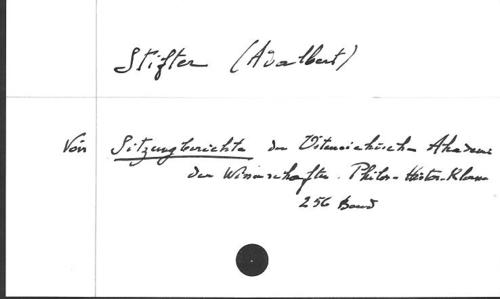 Stifter (Adalbert)
Voir Sitzungberichte der Österreichische Akademie
der Wissenschaften. Philos-Histor-Klasse
256 Band